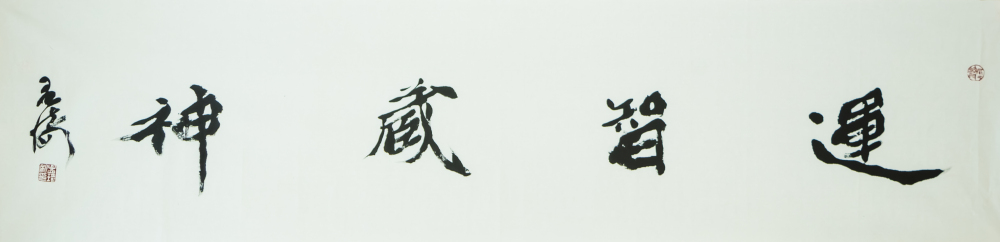 運智藏神